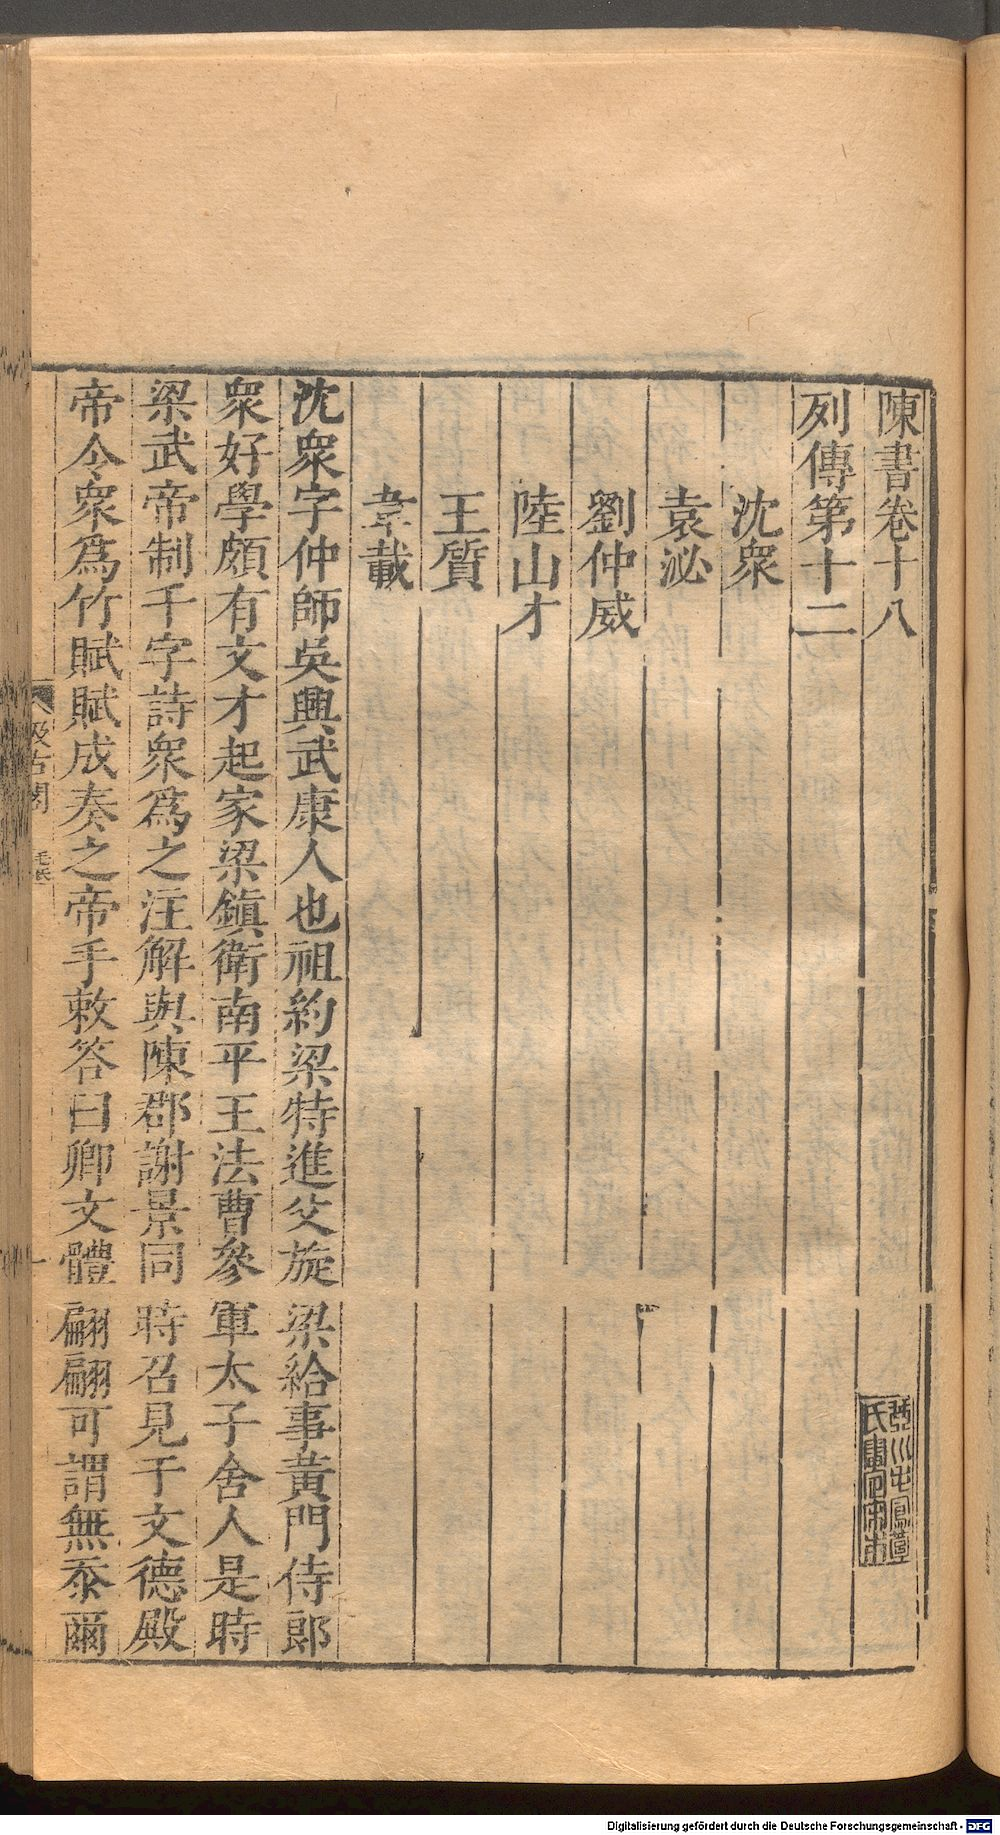 陳書卷十八
列傳第十二
沈衆
袁泌
劉仲威
陸山才
王質
韋載
沈衆字仲師吳興武康人也祖約梁特進父旋梁給事黃門侍郎
衆好學頗有文才起家梁鎮衛南平王法曹參軍太子舍人是時
梁武帝制千字詩衆爲之注解與陳郡謝景同時召見于文德殿
帝令衆爲竹賦賦成奏之帝手敕答曰卿文體翩翩可謂無忝爾
汲古閣
毛氏
Digitalisierung gefördert durch die Deutsche Forschungsgemeinschaft - DFG